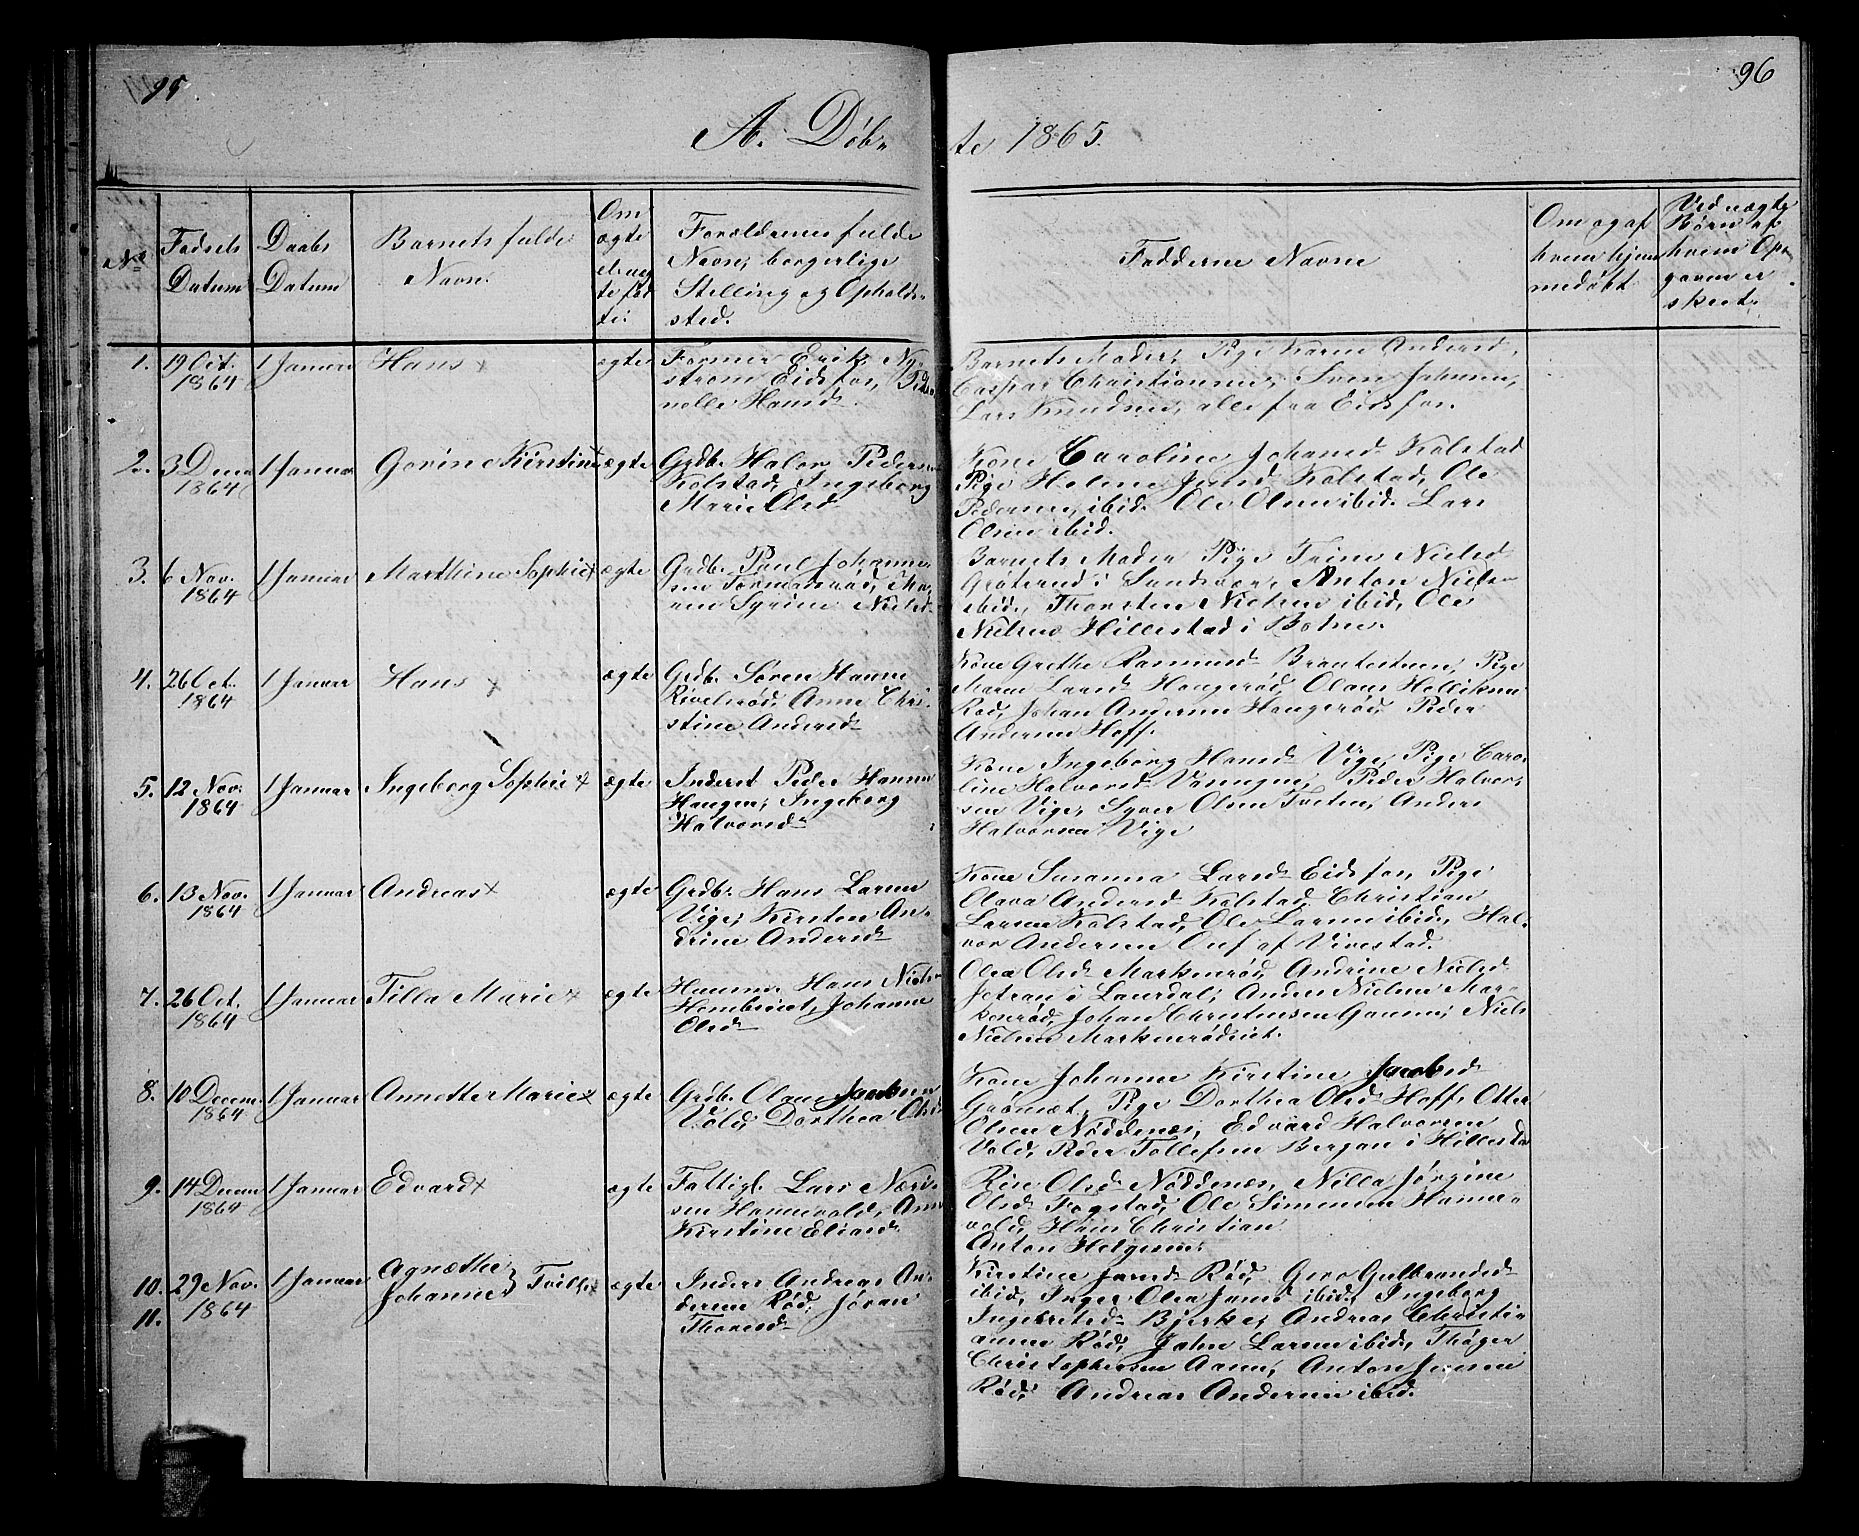 95
96
A. Döb-
te 1865.
No
Fødsels
Datum
Daabs
Datum
Barnets fulde
Navn.
Om
ægte
el. uæg
te fød
te.
Forældrenes fulde
Navn, borgerlige
Stilling og Opholds-
sted.
Faddernes Navne
Om og af
hvem hjem
medøbt
Ved uægte
Børn af
hvem Op-
gaven er
skeet.
1. 19 Oct. 1864
1 Januar
Hans
ægte
Former Erik Ny-
strøm Eidsfos,
Hansd.
Barnets Moder, Pige Karen Andersd.
Caspar Christiansen, Sven Johnsen,
Lars Knudsen, alle fra Eidsfos.
2. 3 Decem 1864
1 Januar
Gorine Kirstine
ægte
Grdb. Halvor Peders
Kolstad, Ingeborg
Marie Olsd
Kone Caroline Johansd Kolstad
Pige Helene Kolstad, Ole
Pedersen, ibid. Ole Olsen ibid. Lars
Olsen ibid.
3. 6 Nov. 1864
1 Januar
Marthine Sophie
ægte
Grdb. Paul Johanne-
sen Ma-
ren Syrine Nielsd
Barnets Moder Pige Trine Nielsd
i Sandsvær, Anton Niels-
ibid., Thorsten Nielsen ibid, Ole
Nielsen Hillestad i Botne.
4. 26 Oct. 1864
1 Januar
Hans
ægte
Grdb. Søren Hansen
Rivelsrød, Anne Chri-
stine Andersd
Kone Grethe Rasmusd Pige
Maren Larsd Haugerød, Olaus Helliksen
Rød, Johan Andersen Haugerød, Peder
Andersen Hoff.
5. 12 Nov. 1864
1 Januar
Ingeborg Sophie
ægte
Inderst Peder Hansen
Haugen, Ingeborg
Halvorsd
Kone Ingeborg Hansd Vige, Pige Caro-
line Halvorsd Peder Halvor-
sen Vige, Syver Olsen Tveten, Anders
Halvorsen Vige
6. 13 Nov. 1864
1 Januar
Andreas
ægte
Grdb. Hans Larsen
Vige, Kirsten An-
drine Andersd
Kone Susanna Larsd Eidsfos, Pige
Olava Andersd Kolstad, Christian
Larsen Kolstad, Ole Larsen ibid, Hal-
vor Andersen Ouf af Vivestad.
7. 26 Oct. 1864
1 Januar
Tilla Marie
ægte
Huusm. Hans Niels-
Johanne
Olsd
Olea Olsd Markenrød, Andrine Nielsd
i Laurdal, Anders Nielsen Mar-
kenrød, Johan Christensen Niels
Nielsen Markenrødeiet.
8. 10 Decem. 1864
1 Januar
Annette Marie
ægte
Grdb. Olaus Jacobsen
Vold, Dorthea Olsd
Kone Johanne Kirstine Jacobsd
Pige Dorthea Olsd Hoff, Otter
Olsen Nøddenes, Edvard Halvorsen
Vold, Peder Tollefsen Bergan i Hillestad
9. 14 Decem 1864
1 Januar
Edvard
ægte
Fattigl. Lars
sen Hannevold, Anne
Kirstine Eliasd
Olsd Nøddenes, Nilla Jørgine
Olsd Fogstad, Ole Simensen Hanne-
vold, Hans Christian
Anton Helgesen,
10.
11.
29 Nov. 1864
1 Januar
Agnethe
Johanne } Tvill.
ægte
Inders Andreas An-
dersen Rød, Jøran
Thoresd
Kirstine Jensd Rød, Guro Gulbrandsd
ibid, Inger Olea Jensd ibid, Ingeborg
Ingebretsd Bjerke, Andreas Christi-
ansen Rød, John Larsen ibid, Thøger
Christophersen Aasen, Anton Jensen
Rød, Andreas Andersen ibid.